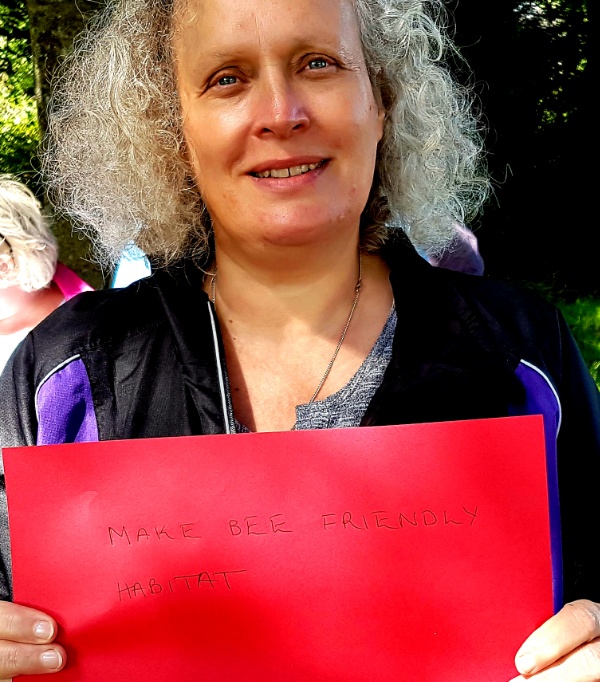 MAKE BEE FRIENDLY
HABITAT